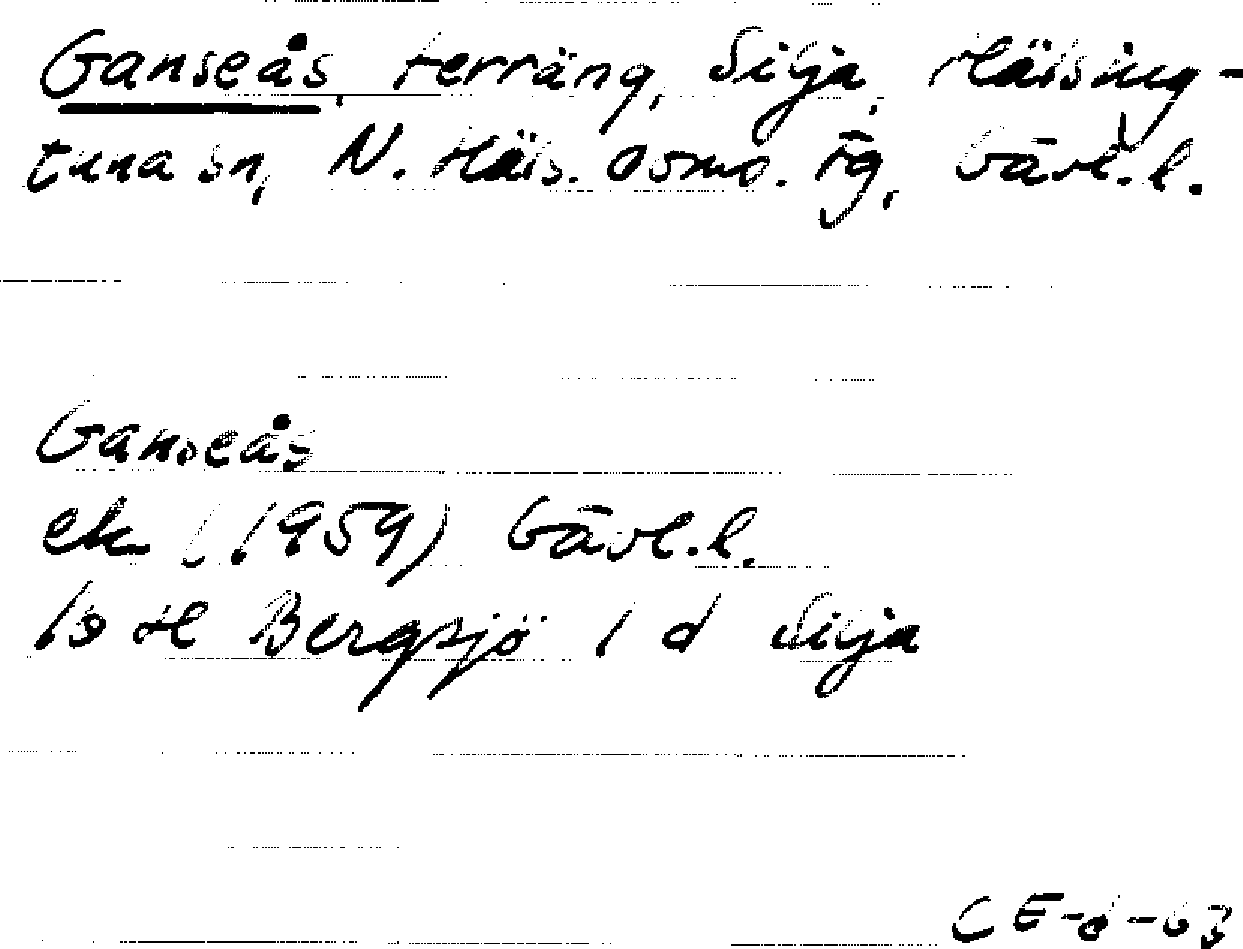 Ganseås, terräng, Silja, Hälsing-
tuna sn, N. Häls. doms. fg, Gävl. l.
Ganseås
ek (1959) Gävl. l.
Bergsjö 1 d Silja